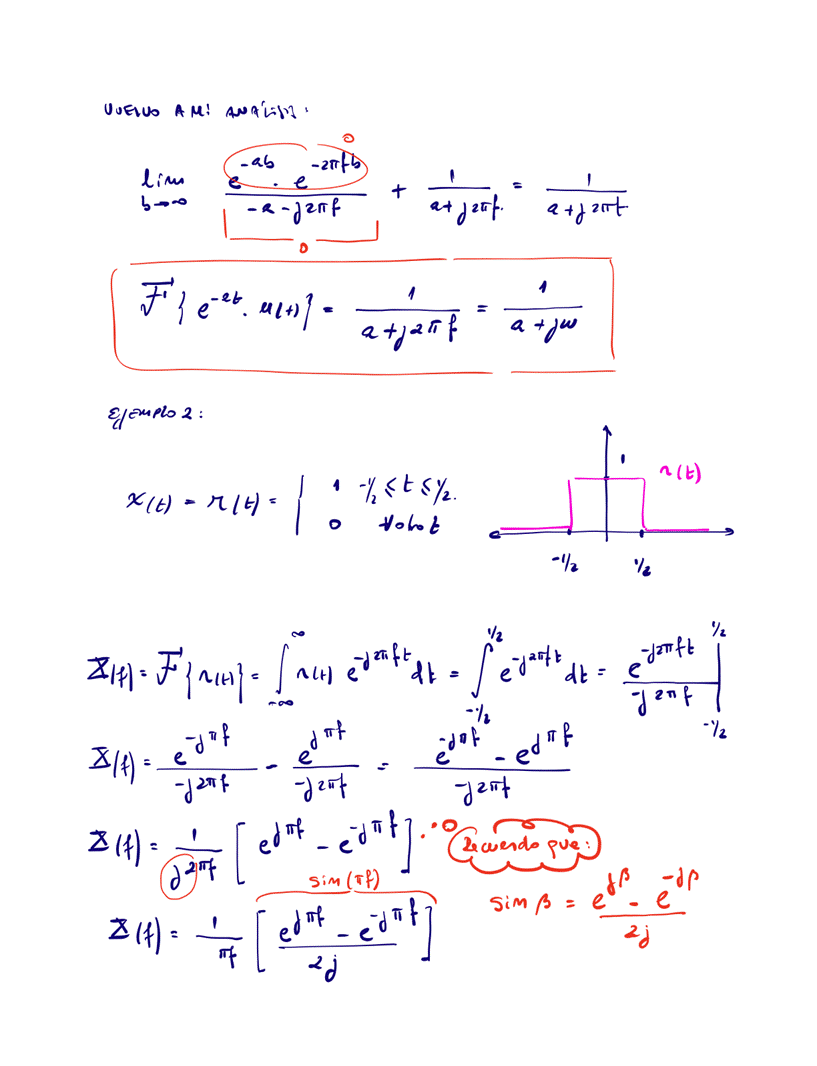 VUELVO A MI ANÁLISIS:
lim b→∞ (e^{-ab} · e^{-2πfb})/(-a-j2πf) + 1/(a+j2πf) = 1/(a+j2πf)
0
0
F{e^{-at}·u(t)} = 1/(a+j2πf) = 1/(a+jω)
EJEMPLO 2:
x(t) = r(t) = { 1 -1/2 ≤ t ≤ 1/2.
0 ∀otro t
1 r(t)
-1/2 1/2
X(f) = F{r(t)} = ∫_{-∞}^{∞} r(t) e^{-j2πft} dt = ∫_{-1/2}^{1/2} e^{-j2πft} dt = e^{-j2πft}/(-j2πf) |_{-1/2}^{1/2}
X(f) = e^{-jπf}/(-j2πf) - e^{jπf}/(-j2πf) = (e^{-jπf} - e^{jπf})/(-j2πf)
X(f) = 1/(j2πf) [e^{jπf} - e^{-jπf}] Recuerdo que:
sin(πf)
sin β = (e^{jβ} - e^{-jβ})/2j
X(f) = 1/(πf) [(e^{jπf} - e^{-jπf})/2j]